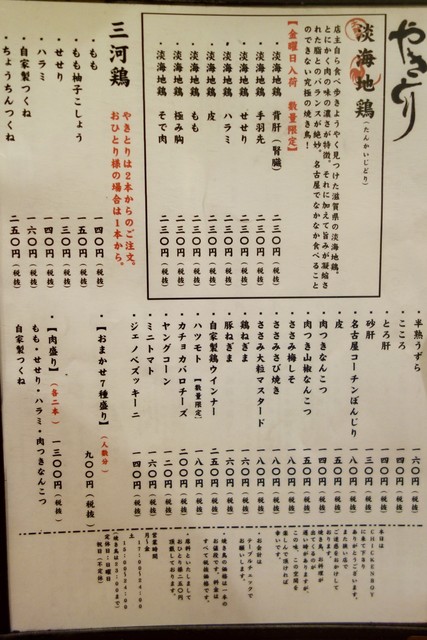 やきとり
淡海地鶏(たんかいじどり)
店主自ら食べ歩きようやく見つけた滋賀県の淡海地鶏。
とにかく肉の味の濃さが特徴。それに加えて旨みが凝縮さ
れた脂とのバランスが絶妙。名古屋でなかなか食べること
のできない究極の焼き鳥！
【金曜日入荷 数量限定】
・淡海地鶏 背肝(腎臓) 二三〇円(税抜)
・淡海地鶏 手羽先 二三〇円(税抜)
・淡海地鶏 せせり 二三〇円(税抜)
・淡海地鶏 ハラミ 二三〇円(税抜)
・淡海地鶏 皮 二三〇円(税抜)
・淡海地鶏 もも 二三〇円(税抜)
・淡海地鶏 極み胸 二三〇円(税抜)
・淡海地鶏 そで肉 二三〇円(税抜)
三河鶏
やきとりは2本からのご注文。
おひとり様の場合は1本から。
・もも 一四〇円(税抜)
・もも柚子こしょう 一五〇円(税抜)
・せせり 一三〇円(税抜)
・ハラミ 一四〇円(税抜)
・自家製つくね 一六〇円(税抜)
・ちょうちんつくね 二五〇円(税抜)
・半熟うずら 一六〇円(税抜)
・こころ 一四〇円(税抜)
・とろ肝 一四〇円(税抜)
・砂肝 一三〇円(税抜)
・名古屋コーチンぼんじり 一八〇円(税抜)
・皮 一五〇円(税抜)
・肉つきなんこつ 一四〇円(税抜)
・肉つき山椒なんこつ 一五〇円(税抜)
・ささみ梅しそ 一八〇円(税抜)
・ささみさび焼き 一八〇円(税抜)
・ささみ大粒マスタード 一八〇円(税抜)
・鶏ねぎま 一六〇円(税抜)
・豚ねぎま 一六〇円(税抜)
・自家製鶏ウインナー 二五〇円(税抜)
・ハツモト【数量限定】 一八〇円(税抜)
・カチョカバロチーズ 二〇〇円(税抜)
・ヤングコーン 二〇〇円(税抜)
・ミニトマト 一六〇円(税抜)
・ジェノベズッキーニ 一四〇円(税抜)
・【おまかせ7種盛り】(人数分) 九〇〇円(税抜)
・【肉盛り】(各二本) 一三〇〇円(税抜)
もも・せせり・ハラミ・肉つきなんこつ
自家製つくね
本日は
CHICKEN BOY
に来て下さり
ありがとうございます。